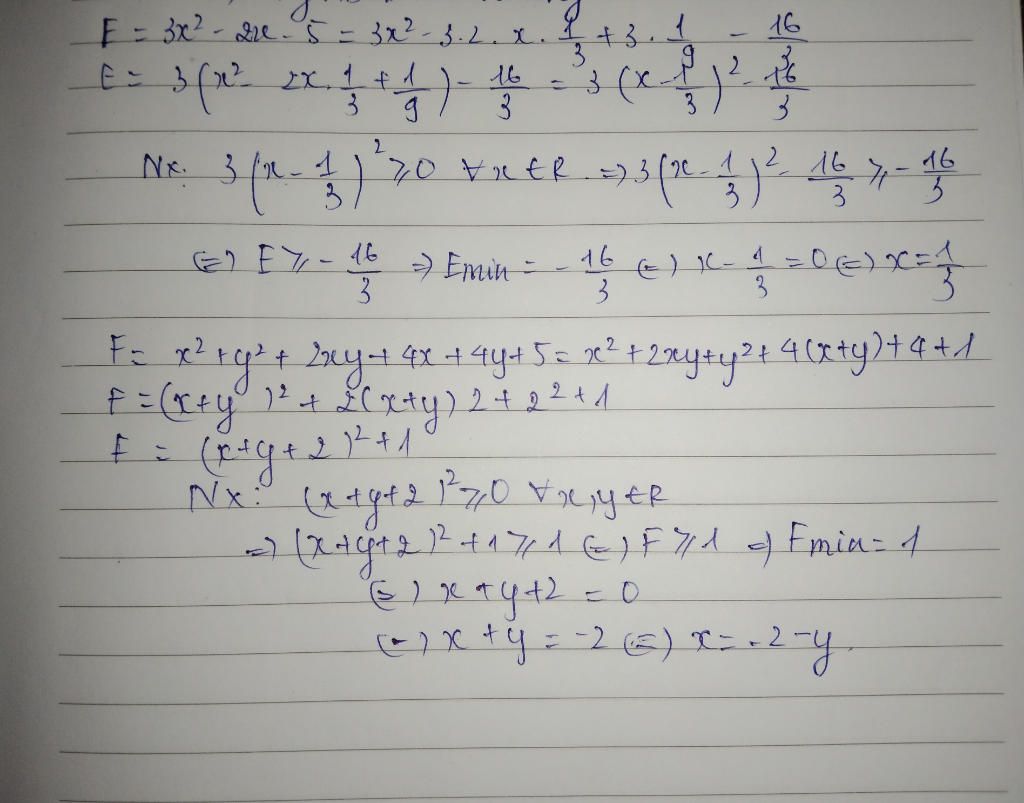 E = 3x² - 2x - 5 = 3x² - 3.2. x. 1/3 + 3. 1/9 - 16/3
E = 3(x² 2x. 1/3 + 1/9) - 16/3 = 3(x - 1/3)² - 16/3
Nx. 3(x - 1/3)² ≥ 0 ∀x ∈ R. => 3(x - 1/3)² - 16/3 ≥ - 16/3
<=> E ≥ - 16/3 => Emin = - 16/3 <=> x - 1/3 = 0 <=> x = 1/3
F = x² + y² + 2xy + 4x + 4y + 5 = x² + 2xy + y² + 4(x+y) + 4 + 1
F = (x+y)² + 2(x+y) 2 + 2² + 1
F = (x+y+2)² + 1
Nx: (x+y+2)² ≥ 0 ∀x,y ∈ R
=> (x+y+2)² + 1 ≥ 1 <=> F ≥ 1 => Fmin = 1
<=> x + y + 2 = 0
<=> x + y = -2 <=> x = -2 - y.